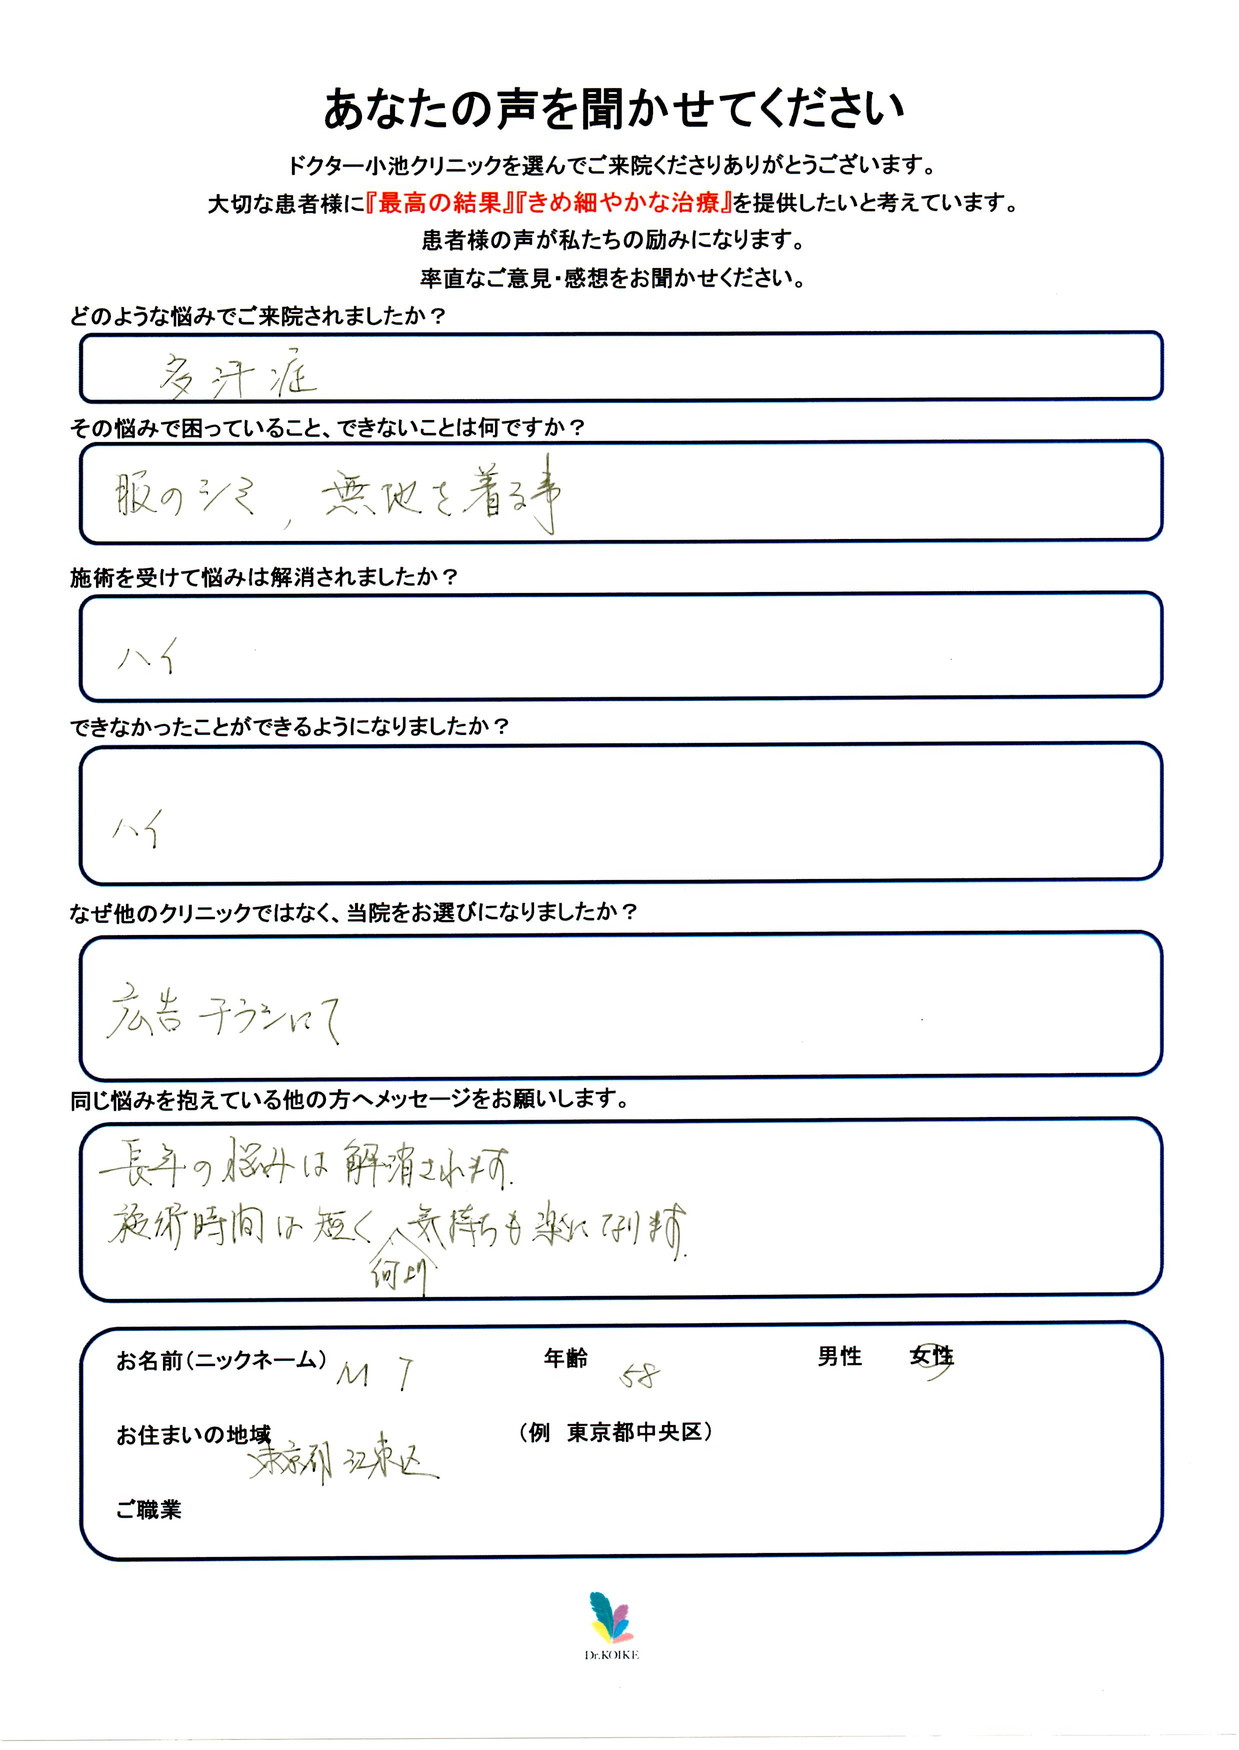 あなたの声を聞かせてください
ドクター小池クリニックを選んでご来院くださりありがとうございます。
大切な患者様に『最高の結果』『きめ細やかな治療』を提供したいと考えています。
患者様の声が私たちの励みになります。
率直なご意見・感想をお聞かせください。
どのような悩みでご来院されましたか？
多汗症
その悩みで困っていること、できないことは何ですか？
服のシミ, 無地を着る事
施術を受けて悩みは解消されましたか？
ハイ
できなかったことができるようになりましたか？
ハイ
なぜ他のクリニックではなく、当院をお選びになりましたか？
広告チラシにて
同じ悩みを抱えている他の方へメッセージをお願いします。
長年の悩みは解消されます.
施術時間は短く 何より気持ちも楽になります.
お名前（ニックネーム） M T 年齢 58 男性 女性
お住まいの地域 東京都江東区 （例 東京都中央区）
ご職業
Dr.KOIKE